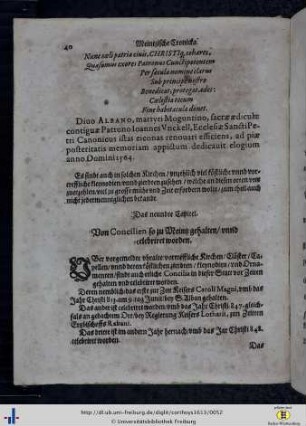 40 Maintzische Cronicka.
Nunc cœli patria civis, CHRISTIq; cohæres,
Quæsumus exores Patronus Cunctipotentem
Per sæcula nomine claro
Sub principe nostro
Benedicat, protegat, adet:
Cælestia tecum
Fine habitacula donet.
DIVO ALBANO, martyri Moguntino, sacræ ædiculæ
contiguæ Patrono Ioannes Vuckell, Ecclesiæ Sancti Pe-
tri Canonicus istas moenas renovari efficiens, ad piæ
posteritatis memoriam appositum dedicauit elogium
anno Domini 1564.
Es sindt auch in solchen Kirchen / vnzehlich viel köstliche vnnd vor-
treffliche Kleynodien vnnd zierden zusehen / welche an diesem orten von
nicht jedermenniglichen bekandt
Das neundte Capitel.
Von Concilien so zu Meintz gehalten / vnnd
celebriret worden.
Uber vorgemelte vhralte vortreffliche Kirchen / Clöster / Ca-
pellen / vnnd deren köstlichen zierden / Kleynodien / vnnd Orna-
menten / sindt auch etliche Concilia in dieser Statt vor Zeiten
gehalten vnd celebriret worden.
Denn nemblich das erste zur Zeit Keisers Caroli Magni, vmb das
Jahr Christi 813. am 9. tag Junii bey S. Alban gehalten.
Das ander ist celebriret worden / vmb das Jahr Christi 847. gleich-
fals an gedachtem Ort / bey Regierung Keisers Lotharii, zun Zeiten
Ertzbischoffs Rabani.
Das dritte ist im andern Jahr hernach / vmb das Jar Christi 848.
celebriret worden.
Das
http://dl.ub.uni-freiburg.de/diglit/serrheys1613/0052
© Universitätsbibliothek Freiburg